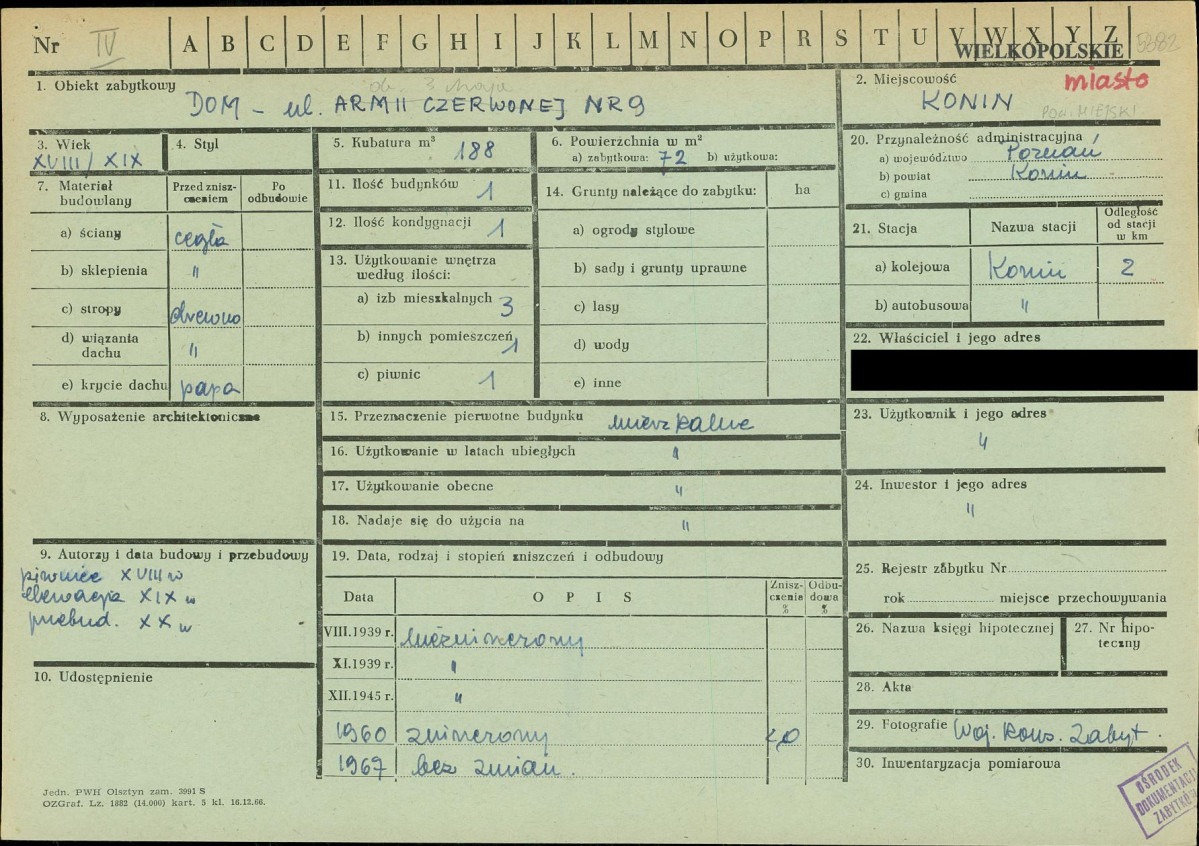 Nr IV A B C D E F G H I J K L M N O P R S T U V W X Y Z 5882
WIELKOPOLSKIE
1. Obiekt zabytkowy
ob. 3 Maja
DOM – ul. ARMII CZERWONEJ NR 9
2. Miejscowość
miasto
KONIN
Pow. MIEJSKI
3. Wiek
XVIII/XIX
4. Styl
5. Kubatura m³ 188
6. Powierzchnia w m²
a) zabytkowa: 72 b) użytkowa:
20. Przynależność administracyjna
a) województwo Poznań
b) powiat Konin
c) gmina
7. Materiał budowlany
Przed zniszczeniem
Po odbudowie
a) ściany cegła
b) sklepienia "
c) stropy drewno
d) wiązania dachu "
e) krycie dachu papa
11. Ilość budynków 1
12. Ilość kondygnacji 1
13. Użytkowanie wnętrza według ilości:
a) izb mieszkalnych 3
b) innych pomieszczeń 1
c) piwnic 1
14. Grunty należące do zabytku: ha
a) ogrody stylowe
b) sady i grunty uprawne
c) lasy
d) wody
e) inne
21. Stacja
Nazwa stacji
Odległość od stacji w km
a) kolejowa Konin 2
b) autobusowa "
22. Właściciel i jego adres
8. Wyposażenie architektoniczne
15. Przeznaczenie pierwotne budynku mieszkalne
16. Użytkowanie w latach ubiegłych "
17. Użytkowanie obecne "
18. Nadaje się do użycia na "
23. Użytkownik i jego adres
"
24. Inwestor i jego adres
"
9. Autorzy i data budowy i przebudowy
piwnice XVIII w
elewacja XIX w
przebud. XX w
10. Udostępnienie
19. Data, rodzaj i stopień zniszczeń i odbudowy
Data
OPIS
Zniszczenia %
Odbudowa %
VIII.1939 r. niezniszczony
XI.1939 r. "
XII.1945 r. "
1960 zniszczony 20
1967 bez zmian.
25. Rejestr zabytku Nr
rok miejsce przechowywania
26. Nazwa księgi hipotecznej
27. Nr hipoteczny
28. Akta
29. Fotografie Woj. Kons. Zabyt.
30. Inwentaryzacja pomiarowa
Jedn. PWH Olsztyn zam. 3991 S
OZGraf. Lz. 1882 (14.000) kart. 5 kl. 16.12.66.
OŚRODEK
DOKUMENTACJI
ZABYTKÓW